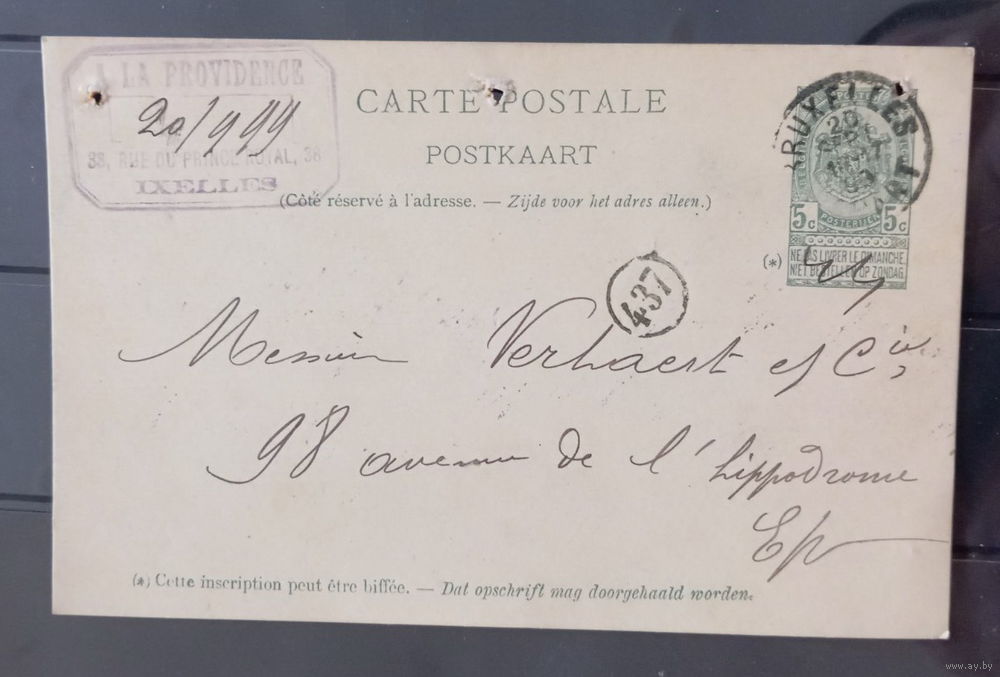 A LA PROVIDENCE
20/9 99
38, RUE DU PRINCE ROYAL, 38
IXELLES
CARTE POSTALE
POSTKAART
(Côté réservé à l'adresse. — Zijde voor het adres alleen.)
BRUXELLES
20
SEPT
5c POSTERIJEN 5c
(*)
NE PAS LIVRER LE DIMANCHE.
NIET BESTELLEN OP ZONDAG.
437
Messieurs Verhaert et Cie,
98 avenue de l'hippodrome
(*) Cette inscription peut être biffée. — Dat opschrift mag doorgehaald worden.
www.ay.by